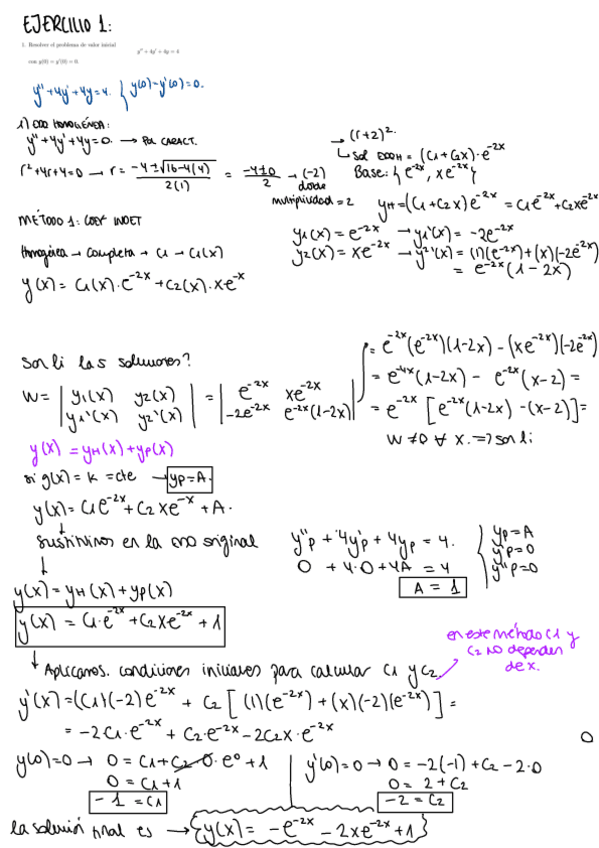 EJERCICIO 1:
1. Resolver el problema de valor inicial
y'' + 4y' + 4y = 4
con y(0) = y'(0) = 0.
y''+4y'+4y=4. { y(0)=y'(0)=0.
1) EDO HOMOGÉNEA:
y''+4y'+4y=0. → Pol CARACT.
r²+4r+4=0 → r = (-4±√(16-4(4)))/(2(1)) = (-4±0)/2 → (-2) doble
multiplicidad = 2
→ (r+2)².
↳ Sol EDOH = (C1+C2x)·e^-2x
Base: { e^-2x, xe^-2x }
yH=(C1+C2x)e^-2x = C1e^-2x+C2xe^-2x
MÉTODO 1: COEF INDET
Homogénea → Completa → C1 → C1(x)
y(x) = C1(x)·e^-2x + C2(x)·xe^-x
y1(x) = e^-2x → y1'(x) = -2e^-2x
y2(x) = xe^-2x → y2'(x) = (1)(e^-2x)+(x)(-2e^-2x)
= e^-2x(1-2x)
Son li las soluciones?
W = | y1(x) y2(x) | = | e^-2x xe^-2x |
| y1'(x) y2'(x) | | -2e^-2x e^-2x(1-2x) |
= e^-2x(e^-2x)(1-2x) - (xe^-2x)(-2e^-2x)
= e^-4x(1-2x) - e^-2x(x-2) =
= e^-2x [e^-2x(1-2x) - (x-2)] =
W ≠ 0 ∀ x. => son li
y(x) = yH(x)+yP(x)
si g(x) = K = cte → yP=A.
y(x) = C1e^-2x + C2xe^-x + A.
Sustituimos en la EDO original
y''P + 4y'P + 4yP = 4.
0 + 4·0 + 4A = 4
A = 1
yP = A
y'P = 0
y''P = 0
y(x) = yH(x) + yP(x)
y(x) = C1·e^-2x + C2xe^-2x + 1
en este método C1 y
C2 NO dependen
de x.
Aplicamos condiciones iniciales para calcular C1 y C2
y'(x) = (C1)(-2)e^-2x + C2 [ (1)(e^-2x) + (x)(-2)(e^-2x) ] =
= -2C1·e^-2x + C2·e^-2x - 2C2x·e^-2x
0
y(0)=0 → 0 = C1+C2·0·e⁰+1
0 = C1+1
-1 = C1
y'(0)=0 → 0 = -2(-1) + C2 - 2·0
0 = 2 + C2
-2 = C2
la solución final es → { y(x) = -e^-2x - 2xe^-2x + 1 }